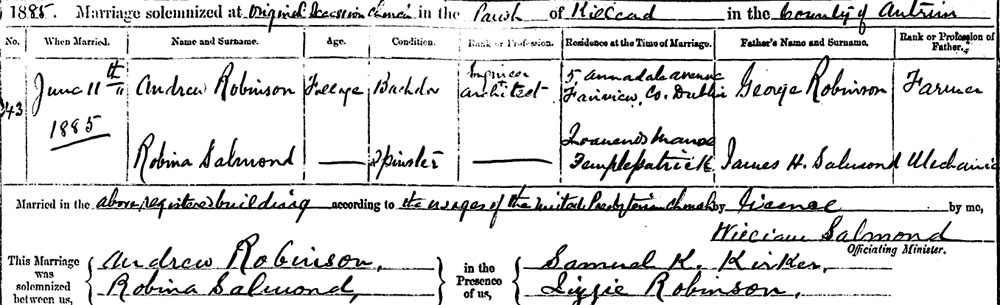 1885. Marriage solemnized at Original Secession Church in the Parish of Killead in the County of Antrim
No. When Married. Name and Surname. Age. Condition. Rank or Profession. Residence at the Time of Marriage. Father's Name and Surname. Rank or Profession of Father.
43 June 11th 1885 Andrew Robinson Full age Bachelor Engineer Architect 5 Annadale Avenue Fairview, Co. Dublin George Robinson Farmer
Robina Salmond — Spinster — Manse Templepatrick James H. Salmond Mechanic
Married in the above registered building according to the usages of the United Presbyterian Church by License by me,
William Salmond
Officiating Minister.
This Marriage was solemnized between us, { Andrew Robinson, Robina Salmond, } in the Presence of us, { Samuel K. Kirker, Lizzie Robinson,